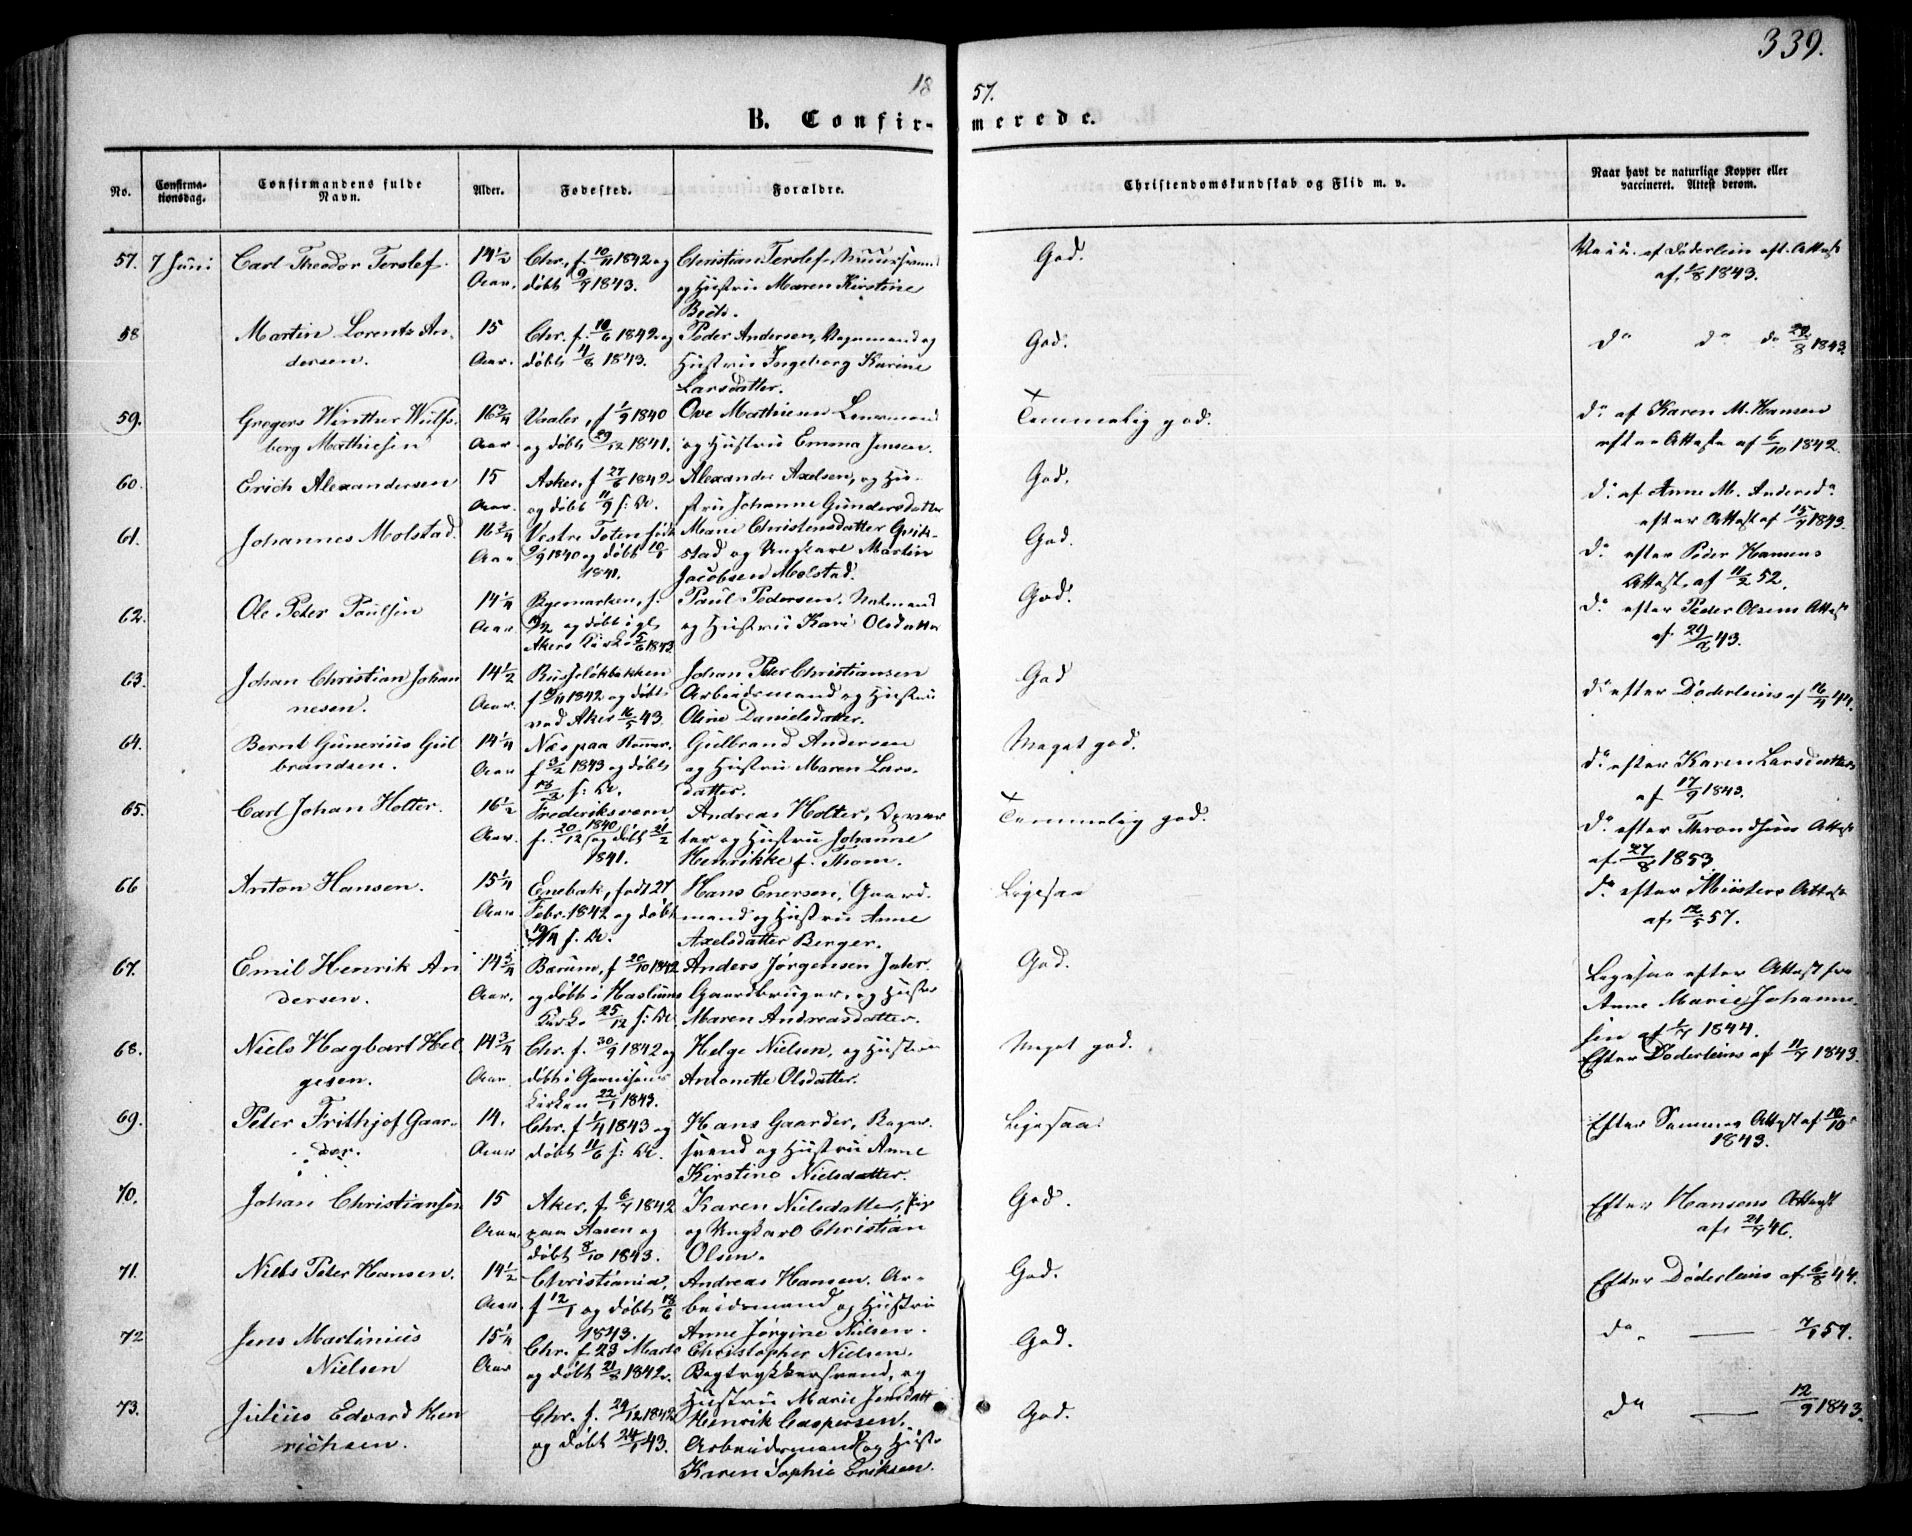 339.
18 57.
B. Confir- merede.
No. Confirma-tionsdag. Confirmandens fulde Navn. Alder. Fødested. Forældre. Christendomskundskab og Flid m. v. Naar havt de naturlige Kopper eller vaccineret. Attest derom.
57. 7 Juni Carl Theodor Terslef. 14 1/2 Chr., f. 10/11 1842 og Christian Terslef God. af Døderlein eft. Attest
Aar. døbt 9/9 1843. og Hustru Maren Kirstine af 1843.
58 Martin Lorentz An- 15 Chr. f. 1842 og Peder Andersen, Vognmand og God. do do do 29/8 1843.
dersen. Aar. døbt 4/8 1843. Hustru Ingeborg Karine
Larsdatter.
59. Gregers Winther Wulfs- 16 3/4 Vaaler, f 1/9 1840 Ove Mathiesen Lensmand Temmelig god. do af Karen M. Hansen
berg Mathiesen Aar. og døbt 29/12 1841. og Hustru Emma Jensen. efter Attest af 6/10 1842.
60. Erich Alexandersen 15 Asker, f 27/6 1842 Alexander Axelsen, og Hu- God. do af Anne M. Andersd.
Aar. og døbt 11/9 s: A. stru Johanne Gundersdatter efter Attest af 15/9 1843.
61. Johannes Molstad. 16 3/4 Vestre Toten født Marie Christensdatter Qvik- God. do efter Peder Hansens
Aar 9/9 1840 og døbt 10/1 stad og Ungkarl Martin Attest, af 11/2 52.
1841. Jacobsen Molstad.
62. Ole Peter Paulsen 14 1/4 Bygemarken, f. Paul Pedersen, Natmand God. do efter Peder Olsens Attest
Aar. og døbt i gl. og Hustru Kari Olsdatter af 43.
Akers Kirke 5/6 1843
63. Johan Christian Johan 14 1/2 Ruseløkbakken Johan Peter Christiansen God do efter Døderleins af 16/4 44.
nesen. Aar. 1842 og døbt Arbeidsmand og Hustru
ved Aker 16/5 43. Oline Danielsdatter.
64. Bernt Gunerius Gul 14 1/4 Næs paa Romer. Gulbrand Andersen Meget god. do efter Karen Larsdatters
brandsen. Aar f 3/2 1843 og døbt og Hustru Maren Lars- af 17/9 1843.
s: A. datter.
65. Carl Johan Holter. 16 1/2 Frederiksværn Andreas Holter, Temmelig god. do efter Throndsens Attest
Aar. f. 20/12 1840 og døbt 21/2 og Hustru Johanne af 27/8 1853
1841. Henrikke f. Thom.
66 Anton Hansen. 15 1/4 Enebak, født 27 Hans Enersen, Gaard- Ligesaa do efter Münsters Attest
Aar Febr. 1842 og døbt mand og Hustru Anne af 12/5 57.
s. A. Axelsdatter Berger.
67. Emil Henrik An 14 3/4 Bærum, f 20/10 1842 Anders Jørgensen Jahr. God. Ligesaa efter Attest fra
dersen. Aar. og døbt i Haslums Gaardbruger, og Hustru Anne Marie Johanne-
Kirke 25/12 s: A. Maren Andreasdatter. sen af 1844.
68. Niels Hagbart Hel 14 3/4 Chr. f. 30/9 1842 og Helge Nielsen, og Hustru Meget god. Efter Døderleins af 11/7 1843.
gesen. Aar. døbt i Garnisons Antonette Olsdatter.
kirken 22/1 1843.
69. Peter Frithjof Gaar- 14. Chr. f 1/4 1843 og Hans Gaarder, Bager- Ligesaa. Efter Attest af 10/10
der. Aar døbt 11/6 s: A. svend og Hustru Anne 1843.
Kirstine Nielsdatter.
70. Johan Christiansen 15 Aker, f. 6/7 1842 Karen Nielsdatter, Pige God. Efter Hansens Attest
Aar. paa Aasen og og Ungkarl Christian af 21/7 46.
døbt 8/10 1843. Olsen.
71. Niels Peter Hansen. 14 1/2 Christiania, Andreas Hansen. Ar- God. Efter Døderleins af 6/8 44.
Aar. f 12/1 og døbt 18/6 beidsmand og Hustru
1843. Anne Jørgine Nielsen.
72 Jens Martinius 15 1/4 Chr. f. 23 Marts Christopher Nielsen, God. do — 7/1 57.
Nielsen Aar og døbt 1842. Bogtrykkersvend, og
Hustru Marie Jensdatt
73. Julius Edvard Hen Chr. f. 29/12 1842 Henrik Caspersen. God. do — 12/9 1843.
richsen. og døbt 24/1 43. Arbeidsmand og Hustru
Karen Sophie Eriksen.